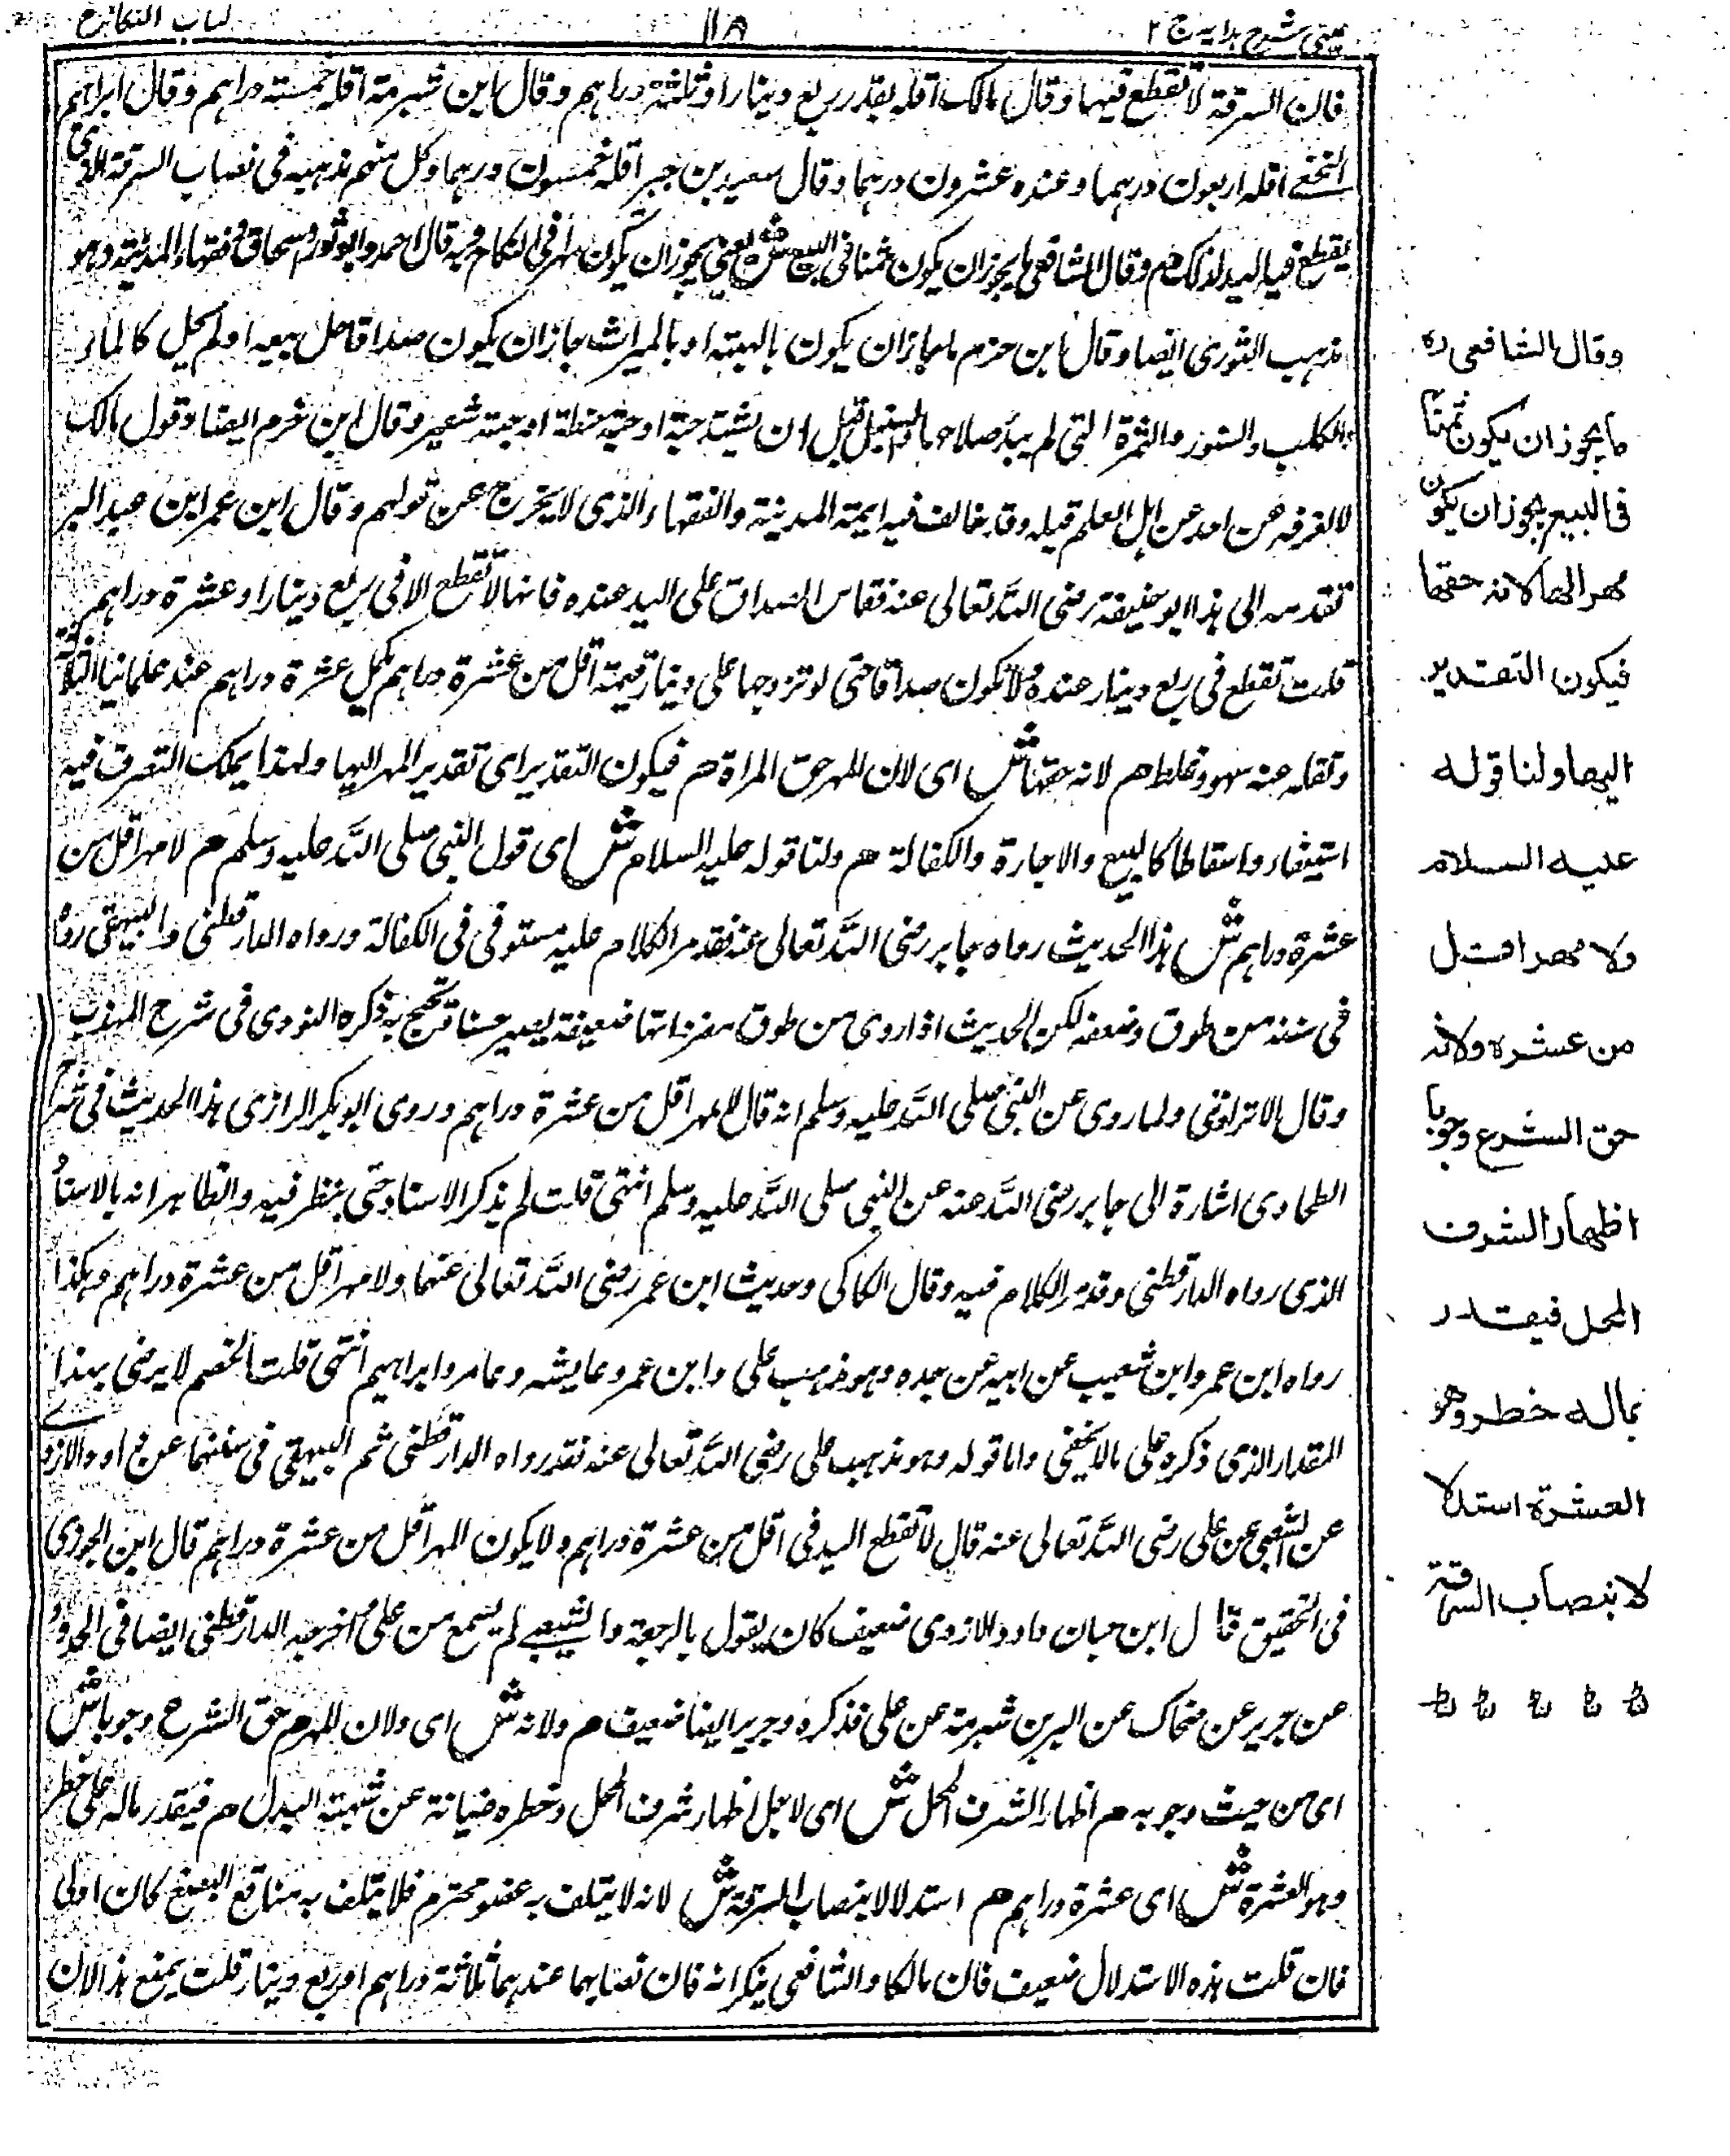 عینی شرح ہدایہ ج ۲
۱۱۸
کتاب النکاح
فان السرقة لا تقطع فیہا وقال مالک اقلہ بقدر ربع دینار او ثلثة دراہم وقال ابن شبرمة اقلہ خمستہ دراہم وقال ابراہیم
النخعے اقلہ اربعون درہما وعندہ عشرون درہما وقال سعید بن جبیر اقلہ خمسون درہما وکل منہم مذہبہ فی نصاب السرقة الذی
یقطع فیہ الید لذلک ھم وقال الشافعی ما یجوز ان یکون ثمنا فی البیع ش یعنی یجوز ان یکون مہرا فی النکاح وبہ قال احمد وابو ثور واسحاق وفقہاء المدینة وہو
مذہب الثوری ایضا وقال ابن حزم ما جاز ان یکون بالہبتہ او بالمیراث جاز ان یکون صداقا حل بیعہ او لم یحل کالماء
والکلب والسنور والثمرة التی لم یبد صلاحہا والسنبل قبل ان یشتد حبة او حبة حنطة او حبتہ شعیر وقال ابن حزم ایضا وقول مالک
لا نعرفہ عن احد من اہل العلم قبلہ وقد خالف فیہ ایمتہ المدینة والفقہاء الذی لا یخرج عن قولہم وقال ابن عمر ابن عبد البر
تقدمہ الی ہذا ابو حنیفة رضی اللہ تعالی عنہ فقاس الصداق علی الید عندہ فانہا لا تقطع الا فی ربع دینار او عشرة دراہم
قلت تقطع فی ربع دینار عندہ ولا یکون صداقا حتی لو تزوجہا علی دینار قیمتہ اقل من عشرة دراہم یکمل عشرة دراہم عند علمائنا الثلاثة
ونقلہ عنہ سہو وغلط ھم لانہ حقہا ش ای لان المہر حق المراة ھم فیکون التقدیر ای تقدیر المہر الیہا ولہذا یملک التصرف فیہ
استیفاء واسقاطا کالبیع والاجارة والکفالة ھم ولنا قولہ علیہ السلام ش ای قول النبی صلی اللہ علیہ وسلم ھم لا مہر اقل من
عشرة دراہم ش ہذا الحدیث رواہ جابر رضی اللہ تعالی عنہ فقد مر الکلام علیہ مستوفی فی الکفالة ورواہ الدارقطنی والبیہقی رواہ
فی سننہ من طرق وضعفہ لکن الحدیث اذا روی من طرق مفرداتہا ضعیفة یصیر حسنا یحتج بہ ذکرہ النووی فی شرح المہذب
وقال الاترازی ولما روی عن النبی صلی اللہ علیہ وسلم انہ قال لا مہر اقل من عشرة دراہم وروی ابو بکر الرازی ہذا الحدیث فی شرح
الطحاوی اشارة الی جابر رضی اللہ عنہ عن النبی صلی اللہ علیہ وسلم انتہی قلت لم یذکر الاسناد حتی ینظر فیہ والظاہر انہ بالاسناد
الذی رواہ الدارقطنی وقد مر الکلام فیہ وقال الکاکی وحدیث ابن عمر رضی اللہ تعالی عنہما ولا مہر اقل من عشرة دراہم وہکذا
رواہ ابن عمر وابن شعیب عن ابیہ عن جدہ وہو مذہب علی وابن عمر وعایشہ وعامر وابراہیم انتہی قلت الخصم لا یرضی بہذا
المقدار الذی ذکرہ علی ما لا یخفی واما قولہ وہو مذہب علی رضی اللہ تعالی عنہ فقد رواہ الدارقطنی ثم البیہقی فی سننہما عن داود الازدے
عن الشعبی عن علی رضی اللہ تعالی عنہ قال لا تقطع الید فی اقل من عشرة دراہم ولا یکون المہر اقل من عشرة دراہم قال ابن الجوزی
فی التحقیق قال ابن حبان داود الازدی ضعیف کان یقول بالرجعة والشعبے لم یسمع من علی اخرجہ الدارقطنی ایضا فی الحدود
عن جریر عن ضحاک عن البر بن شبرمة عن علی فذکرہ وجریر ایضا ضعیف ھم ولانہ ش ای ولان المہر ھم حق الشرع وجوبا ش
ای من حیث وجوبہ ھم اظہار الشرف المحل ش ای لاجل اظہار شرف المحل وخطرہ صیانة عن شبہتہ البدل ھم فیقدر بمالہ علی خطر
وہو العشرة ش ای عشرة دراہم ھم استدلالا بنصاب السرقة ش لانہ لا یتلف بہ عضو محترم فلا یتلف بہ منافع البضع کان اولی
فان قلت ہذہ الاستدلال ضعیف فان مالکا والشافعی ینکرانہ فان نصابہا عندہما ثلاثة دراہم او ربع دینار قلت یمنع ہذا لان
وقال الشافعی رہ
ما یجوز ان یکون ثمنا
فی البیع یجوز ان یکون
مھرا لھا لانہ حقھا
فیکون التقدیر
الیھا ولنا قولہ
علیہ السلام
ولا مھر اقل
من عشرہ ولانہ
حق الشرع وجوبا
اظھار الشرف
المحل فیقدر
بمالہ خطر وھو
العشرة استدلا
لا بنصاب السرقة